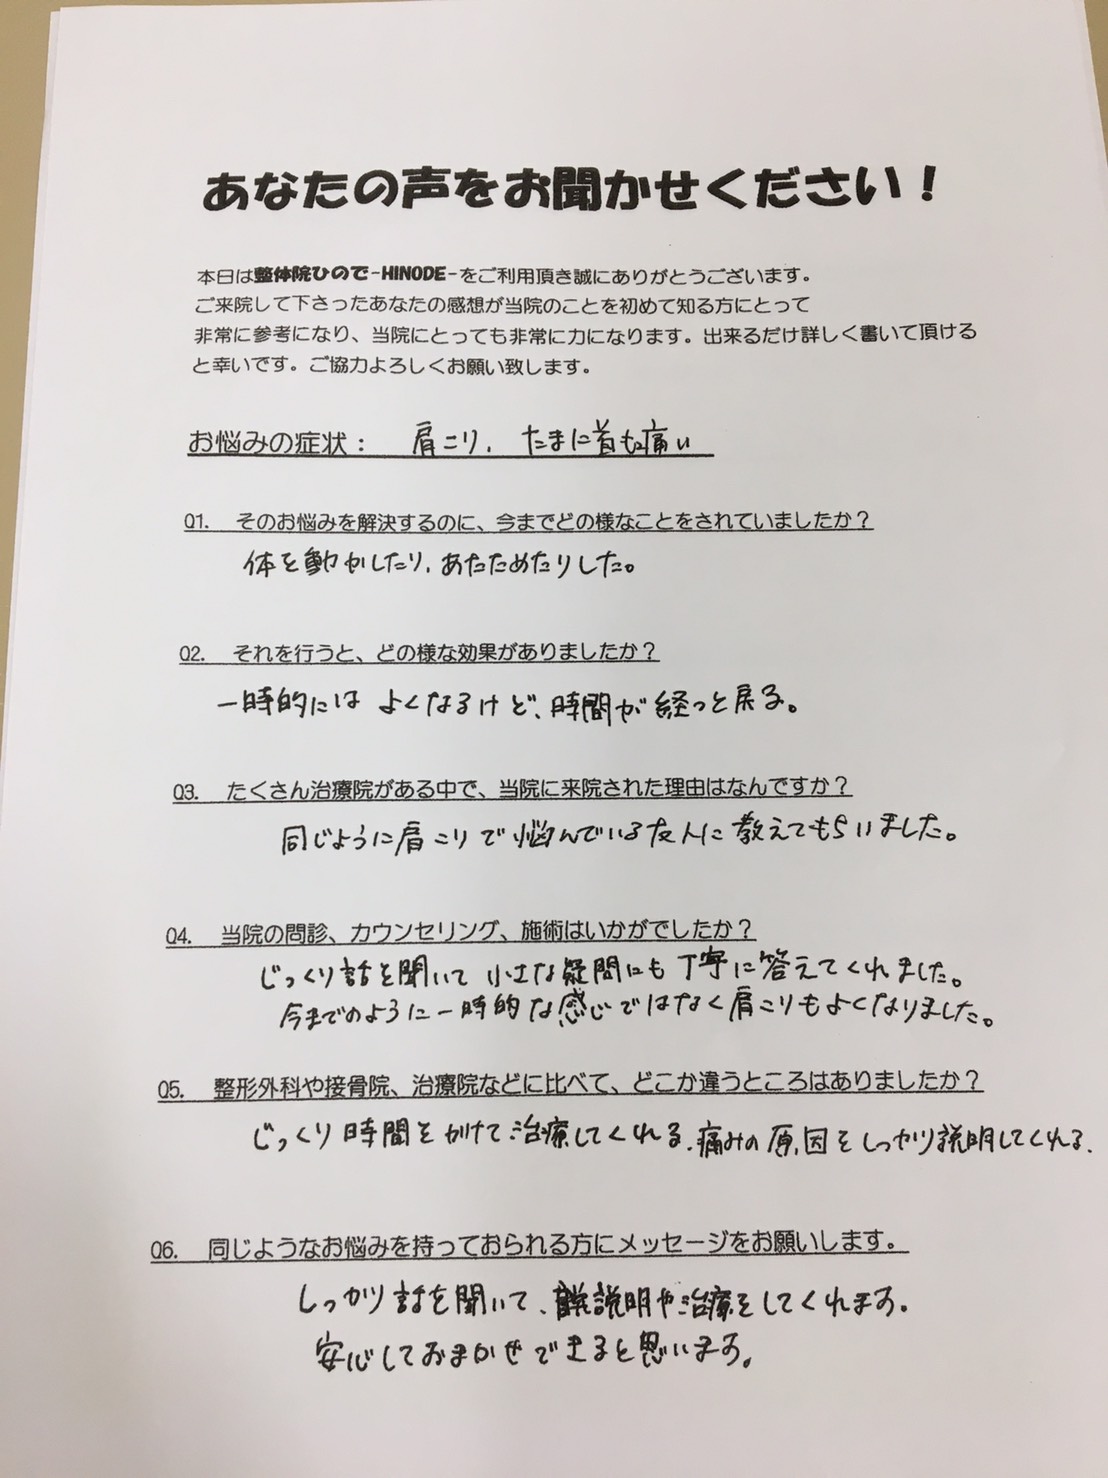 あなたの声をお聞かせください！
本日は整体院ひので-HINODE-をご利用頂き誠にありがとうございます。
ご来院して下さったあなたの感想が当院のことを初めて知る方にとって
非常に参考になり、当院にとっても非常に力になります。出来るだけ詳しく書いて頂ける
と幸いです。ご協力よろしくお願い致します。
お悩みの症状： 肩こり、たまに首も痛い
Q1. そのお悩みを解決するのに、今までどの様なことをされていましたか？
体を動かしたり、あたためたりした。
Q2. それを行うと、どの様な効果がありましたか？
一時的にはよくなるけど、時間が経つと戻る。
Q3. たくさん治療院がある中で、当院に来院された理由はなんですか？
同じように肩こりで悩んでいる友人に教えてもらいました。
Q4. 当院の問診、カウンセリング、施術はいかがでしたか？
じっくり話を聞いて小さな疑問にも丁寧に答えてくれました。
今までのように一時的な感じではなく肩こりもよくなりました。
Q5. 整形外科や接骨院、治療院などに比べて、どこか違うところはありましたか？
じっくり時間をかけて治療してくれる、痛みの原因をしっかり説明してくれる、
Q6. 同じようなお悩みを持っておられる方にメッセージをお願いします。
しっかり話を聞いて、説明や治療をしてくれます。
安心しておまかせできると思います。